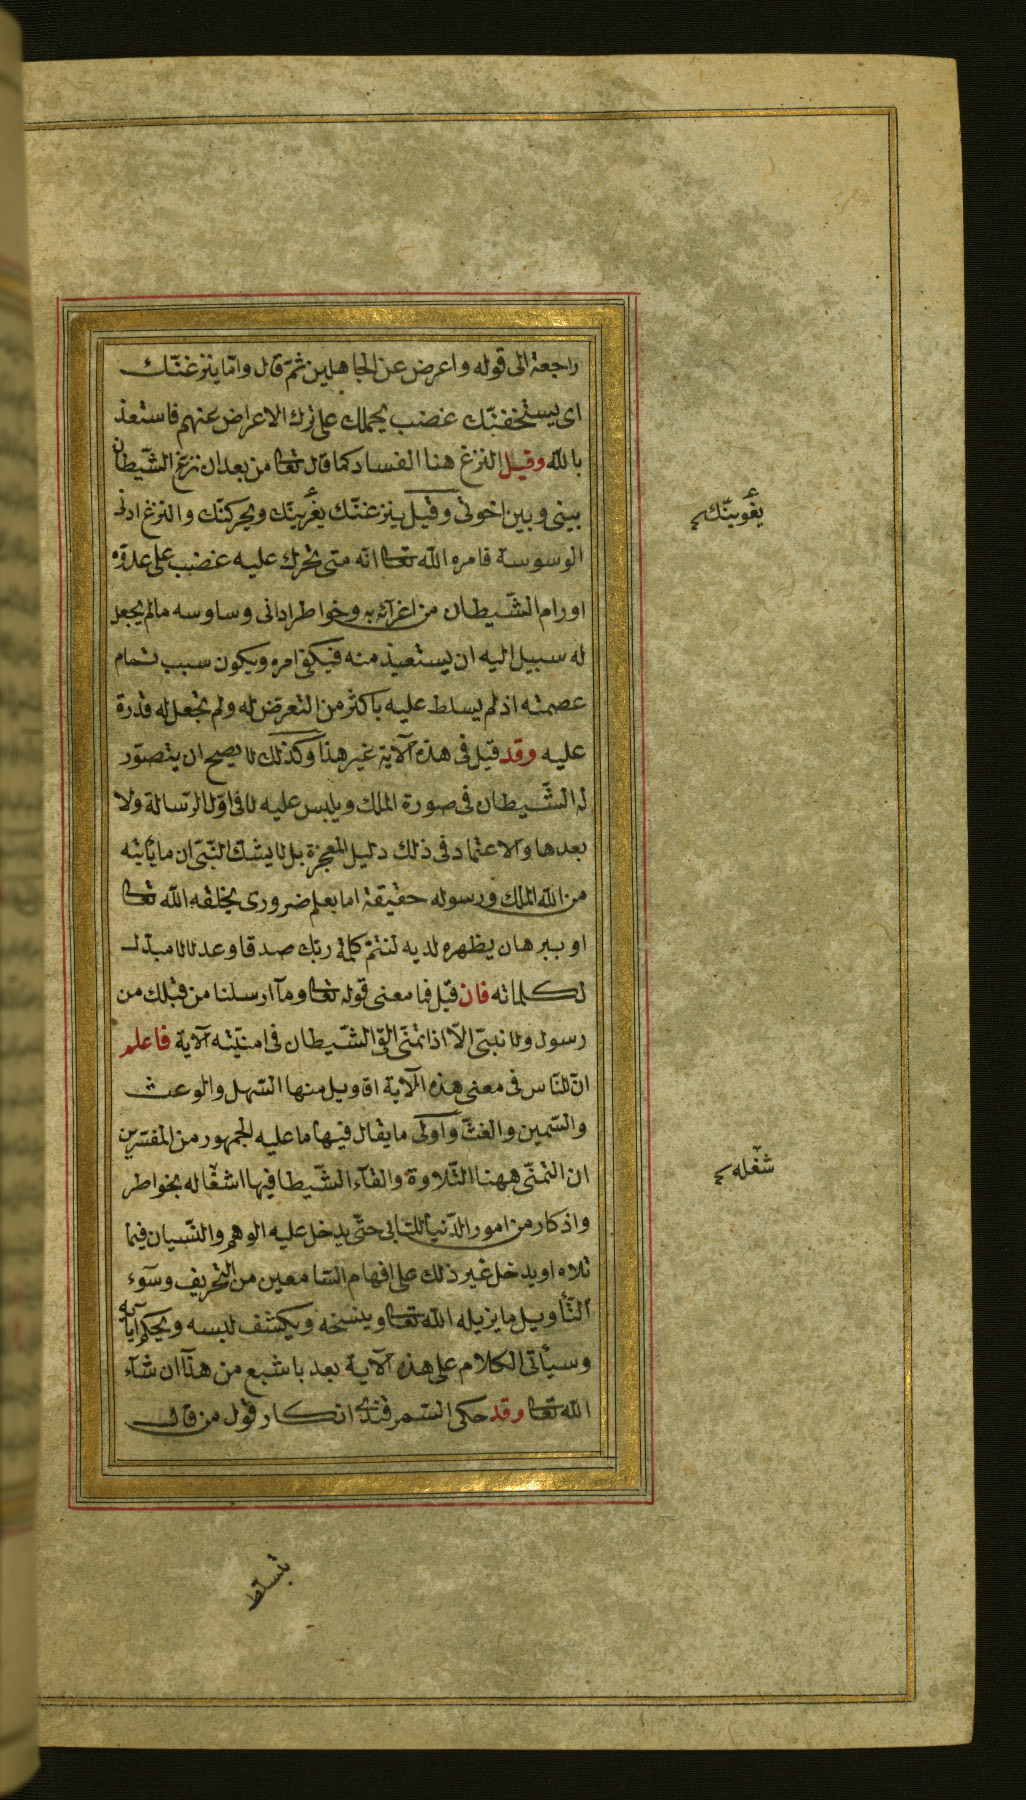 راجعة الى قوله واعرض عن الجاهلين ثمّ قال وامّا ينزغنّك
اى يستخفنّك غضب يحملك على ترك الاعراض عنهم فاستعذ
بالله وقيل النزغ هنا الفساد كما قال تعا من بعد ان نزغ الشّيطان
بينى وبين اخوتى وقيل ينزغنّك يغرينّك ويحركنّك والنزغ ادنى
الوسوسة فامره الله تعا انّه متى تحرك عليه غضب على عدوّه
اورام الشّيطان من اغرآئه به وخواطر ادانى وساوسه مالم يجعل
له سبيل اليه ان يستعيذ منه فيكفى امره ويكون سبب تمام
عصمته اذ لم يسلط عليه باكثر من التعرّض له ولم يجعل له قدرة
عليه وقد قيل فى هذه الآية غير هذا وكذلك لا يصح ان يتصوّر
له الشّيطان فى صورة الملك ويلبس عليه لا فى اوّل الرّسالة ولا
بعدها والاعتماد فى ذلك دليل المعجزة بل لا يشكّ النّبىّ ان ما يأتيه
من الله الملك ورسوله حقيقة اما بعلم ضرورى يخلقه الله تعا
او ببرهان يظهره لديه لتتمّ كلمة ربّك صدقا وعدلا لا مبدّل
لكلماته فان قيل فما معنى قوله تعا وما آرسلنا من قبلك من
رسول ولا نبىّ الاّ اذا تمنّى القى الشّيطان فى امنيّته الآية فاعلم
انّ للنّاس فى معنى هذه الآية اقاويل منها السّهل والوعث
والسّمين والغثّ واولى ما يقال فيها ما عليه الجمهور من المفسّرين
ان التمنّى ههنا التّلاوة والقآء الشّيطا فيها اشغاله بخواطر
واذكار من امور الدّنيا للتالى حتّى يدخل عليه الوهم والنّسيان فيما
تلاه او يدخل غير ذلك على افهام السّامعين من التحريف وسوء
التّأويل ما يزيله الله تعا وينسخه ويكشف لبسه ويحكم آياته
وسيأتى الكلام على هذه الآية بعد باشبع من هذا ان شآء
الله تعا وقد حكى السّمرقندى انكار قول من قال
يغوينّك
شغله
بتسلّط